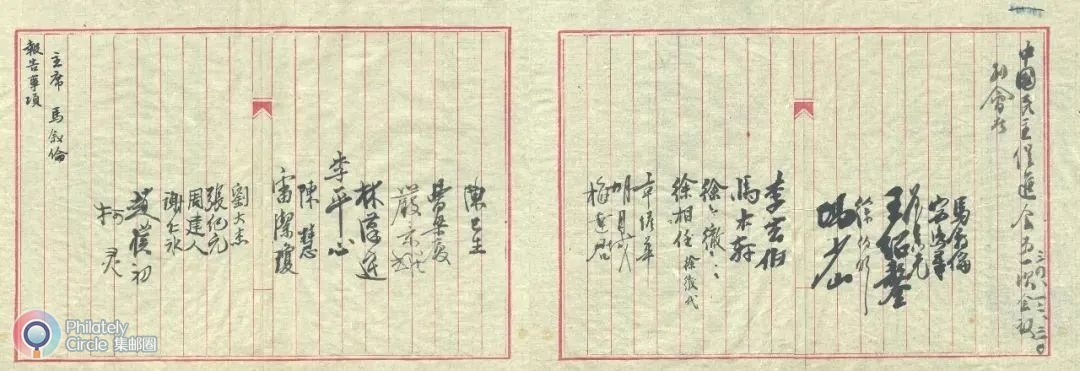 中國民主促進會第一次會議
三四、十二、三〇
到會者
馬叙倫
宓逸羣
王紹鏊
徐伯昕
馮少山
李玄伯
馬木軒
徐徹
徐相任 徐徹代
章蟾華
梅達君
陳已生
曹梁厦
嚴景耀
林漢達
李平心
陳慧
雷潔瓊
劉大杰
張紀元
周建人
謝仁冰
趙樸初
柯灵
主席 馬叙倫
報告事項
Philately
Circle 集邮圈